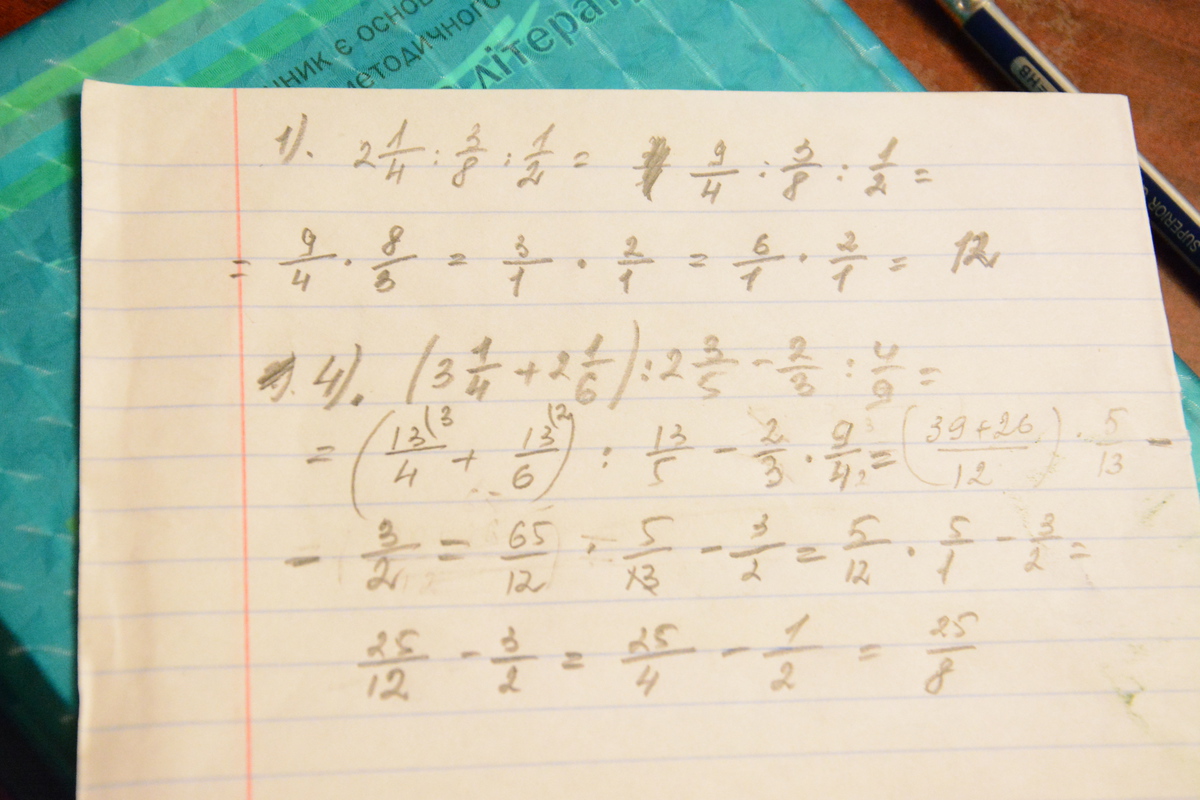 чник є основ
методичного
літерату
2HB
SUPERIOR
1). 2 1/4 : 3/8 : 1/2 = 9/4 : 3/8 : 1/2 =
= 9/4 · 8/3 = 3/1 · 2/1 = 6/1 · 2/1 = 12
4). (3 1/4 + 2 1/6) : 2 3/5 - 2/3 : 4/9 =
= (13/4 (3 + 13/6 (2) : 13/5 - 2/3 · 9/4 = (39+26/12) · 5/13 -
- 3/2 = 65/12 · 5/13 - 3/2 = 5/12 · 5/1 - 3/2 =
25/12 - 3/2 = 25/4 - 1/2 = 25/8